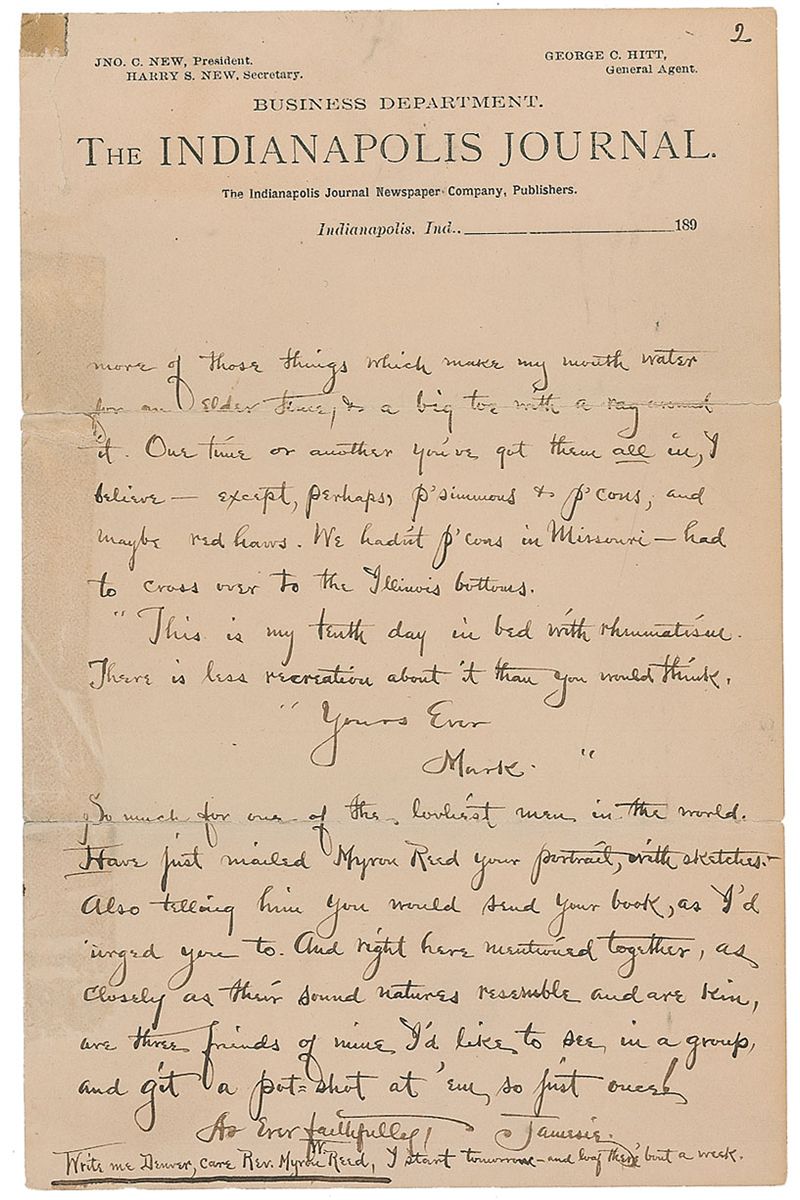 2
JNO. C. NEW, President.
HARRY S. NEW, Secretary.
GEORGE C. HITT,
General Agent.
BUSINESS DEPARTMENT.
THE INDIANAPOLIS JOURNAL.
The Indianapolis Journal Newspaper Company, Publishers.
Indianapolis, Ind., 189
more of those things which make my mouth water
for an elder time, & a big toe with a rag around
it. One time or another you've got them all in, I
believe — except, perhaps, p'simmons & p'cons, and
maybe red haws. We hadn't p'cons in Missouri — had
to cross over to the Illinois bottoms.
" This is my tenth day in bed with rheumatism.
There is less recreation about it than you would think.
" Yours Ever
Mark. "
So much for one of the lovliest men in the world.
Have just mailed Myron Reed your portrait, with sketches.—
Also telling him you would send your book, as I'd
urged you to. And right here mentioned together, as
closely as their sound natures resemble and are kin,
are three friends of mine I'd like to see in a group,
and git a pot-shot at 'em, so just once!
As Ever faithfully, Jamesie.
Write me Denver, care Rev. Myron W. Reed, I start tomorrow — and loaf there 'bout a week.